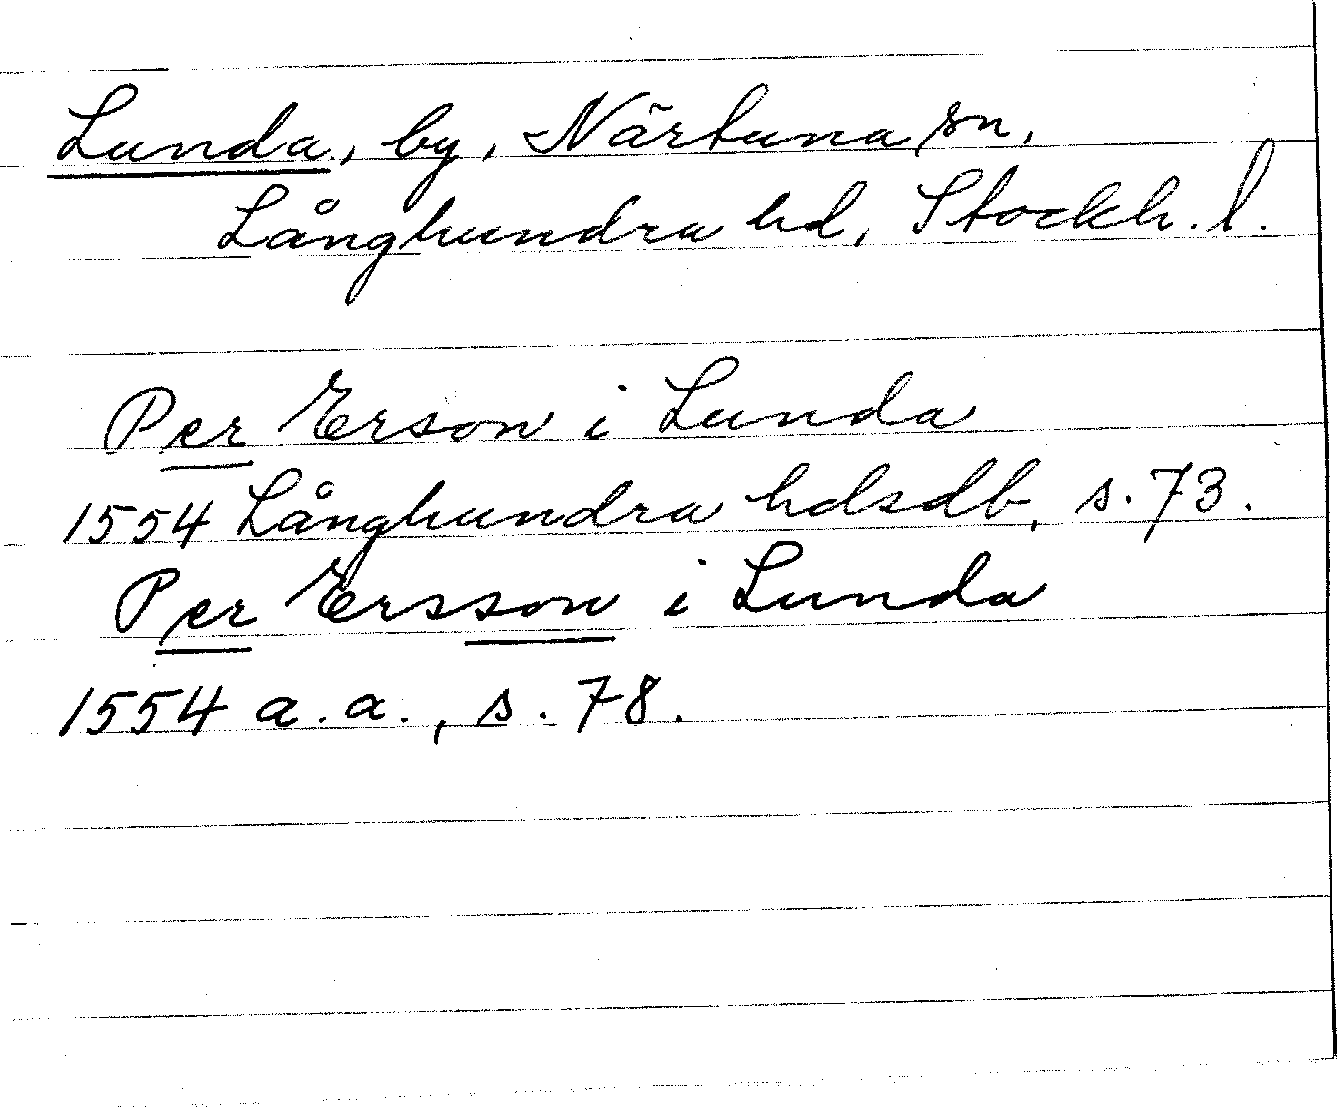 Lunda, by, Närtuna sn,
Långhundra hd, Stockh. l.
Per Erson i Lunda
1554 Långhundra hdsdb, s. 73.
Per Ersson i Lunda
1554 a.a., s. 78.